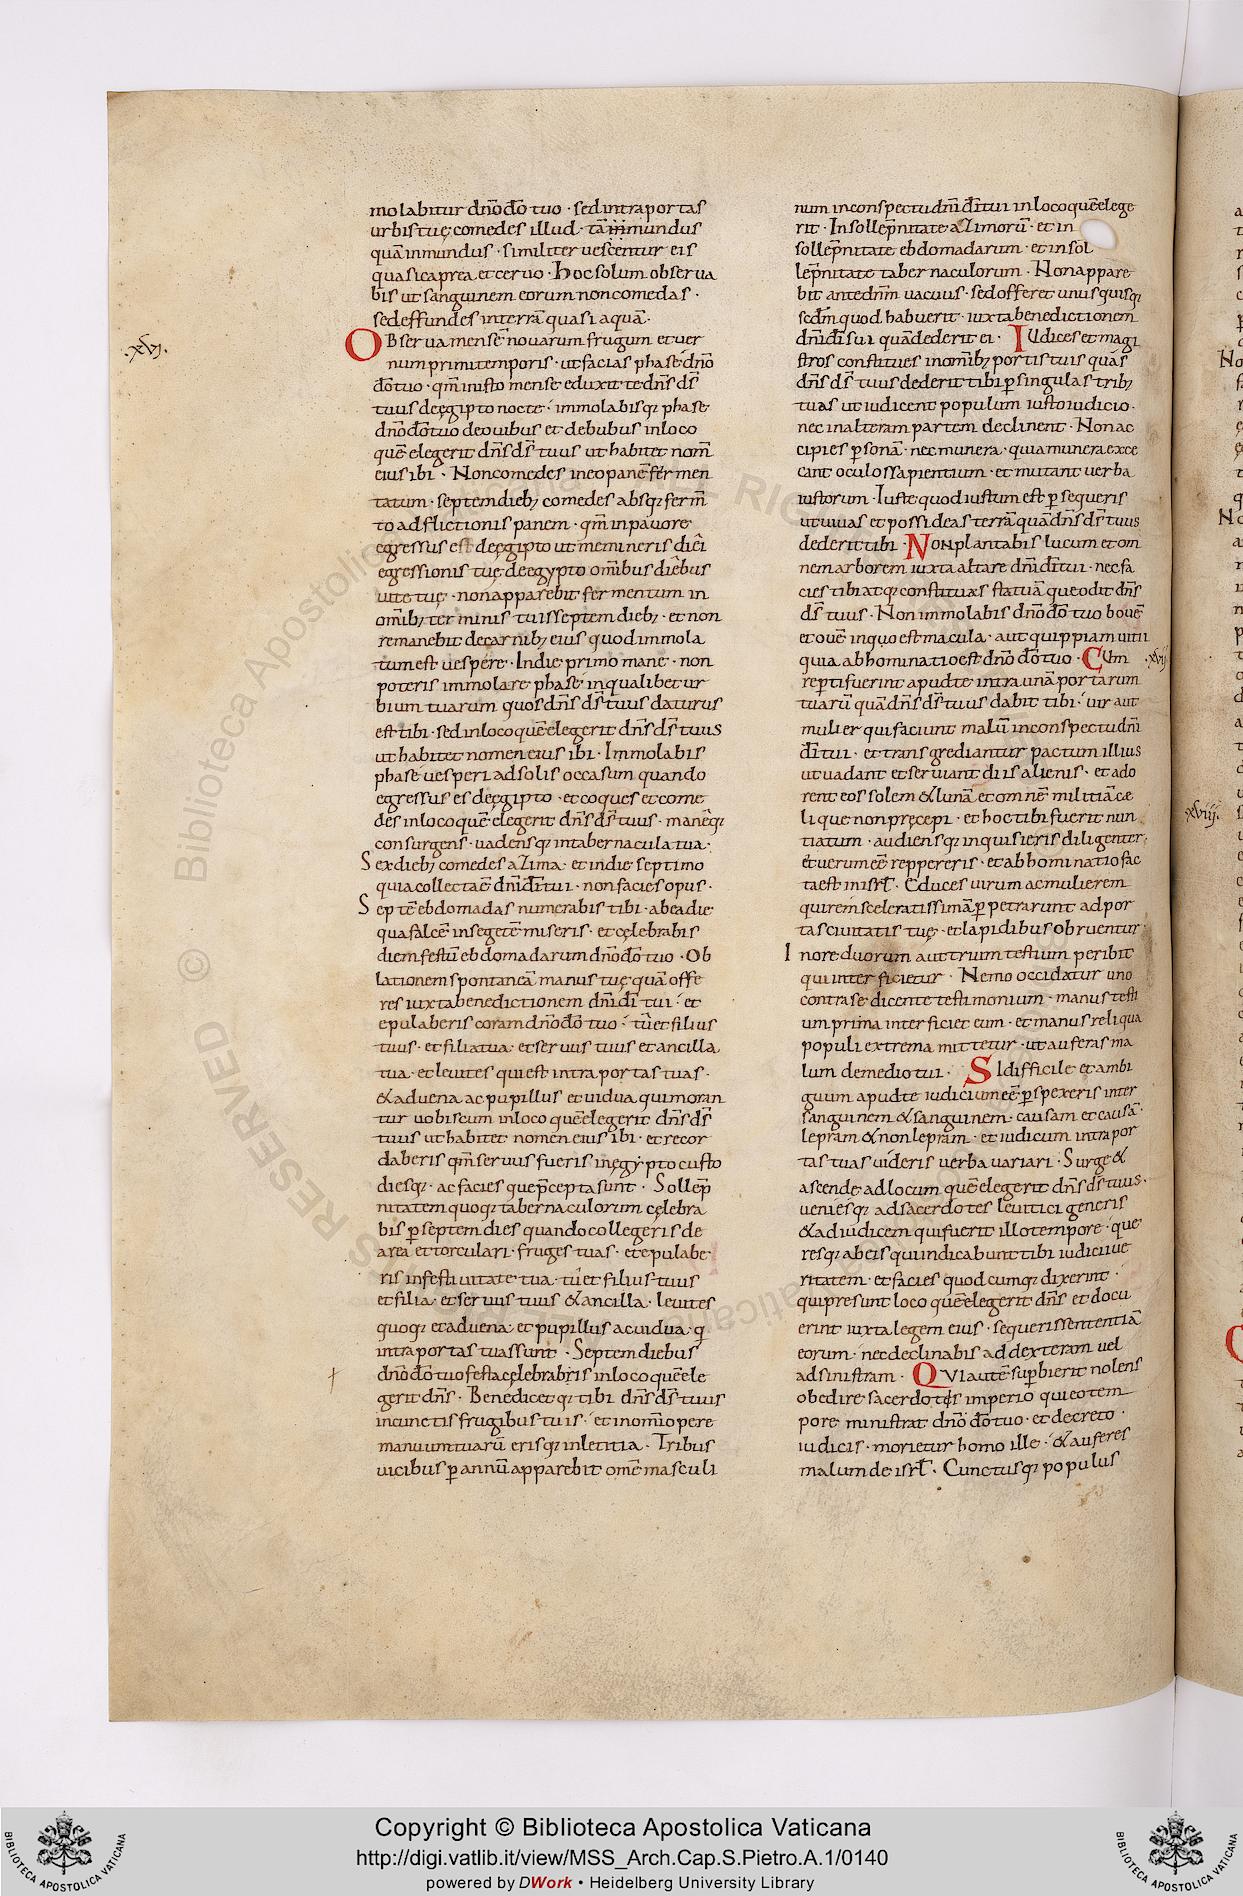 molabitur dño dõ tuo · sed intra portas
urbis tuę comedes illud · tã inmundus
quã inmundus · similiter uescentur eis
quasi caprea et ceruo · hoc solum obserua
bis ut sanguinem eorum non comedas ·
sed effundes in terrã quasi aquã ·
·xvi·
OBserua mensẽ nouarum frugum et uer
num primi temporis · ut facias phase dño
dõ tuo · qm̃ in isto mense eduxit te dñs ds̃
tuus de ęgipto nocte · immolabisq; phase
dño dõ tuo de ouibus et de bubus in loco
quẽ elegerit dñs ds̃ tuus ut habitet nom̃
eius ibi · Non comedes in eo panẽ fermen
tatum · septem dieb; comedes absq; ferm̃
to adflictionis panem · qm̃ in pauore
egressus es de ęgipto ut memineris diei
egressionis tuę de egypto omĩbus diebus
uite tuę · non apparebit fermentum in
omĩb; terminis tuis septem dieb; · et non
remanebit de carnib; eius quod immola
tum est uespere · In die primo mane · non
poteris immolare phase in qualibet ur
bium tuarum quos dñs ds̃ tuus daturus
est tibi · sed in loco quẽ elegerit dñs ds̃ tuus
ut habitet nomen eius ibi · Immolabis
phase uesperi ad solis occasum quando
egressus es de ęgipto · et coques et come
des in loco quẽ elegerit dñs ds̃ tuus · maneq;
consurgens · uadensq; in tabernacula tua ·
Sex dieb; comedes azima · et in die septimo
quia collecta ẽ dñi dĩ tui · non facies opus ·
Septẽ ebdomadas numerabis tibi · ab ea die
qua falcẽ in segetẽ miseris · et cęlebrabis
diem festũ ebdomadarum dño dõ tuo · Ob
lationem spontaneã manus tuę quã offe
res iuxta benedictionem dñi dĩ tui · et
epulaberis coram dño dõ tuo · tũ et filius
tuus · et filia tua · et seruus tuus et ancilla
tua · et leuites qui est intra portas tuas ·
& aduena ac pupillus et uidua qui moran
tur uobiscum in loco quẽ elegerit dñs ds̃
tuus ut habitet nomen eius ibi · et recor
daberis qm̃ seruus fueris in ęgypto custo
diesq; · ac facies que p̃cepta sunt · Sollep̃
nitatem quoq; tabernaculorum cęlebra
bis p̱ septem dies quando collegeris de
area et torculari · fruges tuas · et epulabe
ris in festiuitate tua · tũ et filius tuus
et filia · et seruus tuus & ancilla · leuites
quoq; et aduena · et pupillus ac uidua · q
intra portas tuas sunt · Septem diebus
dño dõ tuo festa cęlebrabris in loco quẽ ele
gerit dñs · Benedicetq; tibi dñs ds̃ tuus
in cunctis frugibus tuis · et in omĩ opere
manuum tuarũ erisq; in letitia · Tribus
uicibus p̱ annũ apparebit omẽ masculi
num in conspectu dñi dĩ tui in loco quẽ elege
rit · In sollep̃nitate azimorũ · et in
sollep̃nitate ebdomadarum · et in sol
lep̃nitate tabernaculorum · Non appare
bit ante dñm uacuus · sed offeret unusquisq;
scdm̃ quod habuerit · iuxta benedictionem
dñi dĩ sui quã dederit ei · IUdices et magi
stros constitues in omĩb; portis tuis quas
dñs ds̃ tuus dederit tibi p̱ singulas trib;
tuas ut iudicent populum iusto iudicio ·
nec in alteram partem declinent · Non ac
cipies p̱sonã · nec munera · quia munera exce
cant oculos sapientium · et mutant uerba
iustorum · Iuste quod iustum est p̱sequeris
ut uiuas et possideas terrã quã dñs ds̃ tuus
dederit tibi · NON plantabis lucum et om
nem arborem iuxta altare dñi dĩ tui · nec fa
cies tibi atq; constituas statuã que odit dñs
ds̃ tuus · Non immolabis dño dõ tuo bouẽ
et ouẽ in quo est macula · aut quippiam uitii
quia abhominatio est dño dõ tuo · CUm ·xvii·
rep̱ti fuerint apud te intra unã portarum
tuarũ quã dñs ds̃ tuus dabit tibi · uir aut
mulier qui faciunt malũ in conspectu dñi
dĩ tui · et transgrediantur pactum illius
ut uadant et seruiant diis alienis · et ado
rent eos solem & lunã et omnẽ militiã cæ
li que non pręcepi · et hoc tibi fuerit nun
tiatum · audiensq; inquisieris diligenter ·
et uerum eẽ reppereris · et abhominatio fac
ta est in isrl̃ · Educes uirum ac mulierem
qui rem sceleratissimã p̱petrarunt ad por
tas ciuitatis tuę · et lapidibus obruentur ·
In ore duorum aut trium testium peribit
qui interficietur · Nemo occidatur uno
contra se dicente testimonium · manus testi
um prima interficiet eum · et manus reliqua
populi extrema mittetur · ut auferas ma
lum de medio tui · SI difficile et ambi
guum apud te iudicium eẽ p̱spexeris inter
sanguinem & sanguinem · causam et causã ·
lepram & non lepram · et iudicum intra por
tas tuas uideris uerba uariari · Surge &
ascende ad locum quẽ elegerit dñs ds̃ tuus ·
ueniesq; ad sacerdotes leuitici generis
& ad iudicem qui fuerit illo tempore · que
resq; ab eis qui indicabunt tibi iudicii ue
ritatem · et facies quodcumq; dixerint ·
qui presunt loco quẽ elegerit dñs et docu
erint iuxta legem eius · sequeris sententiã
eorum · nec declinabis ad dexteram uel
ad sinistram · QVI autẽ sup̱bierit nolens
obedire sacerdotes imperio qui eo tem
pore ministrat dño dõ tuo · et decreto ·
iudicis · morietur homo ille · & auferes
malum de isrl̃ · Cunctusq; populus
xviii·
Copyright © Biblioteca Apostolica Vaticana
http://digi.vatlib.it/view/MSS_Arch.Cap.S.Pietro.A.1/0140
powered by DWork • Heidelberg University Library